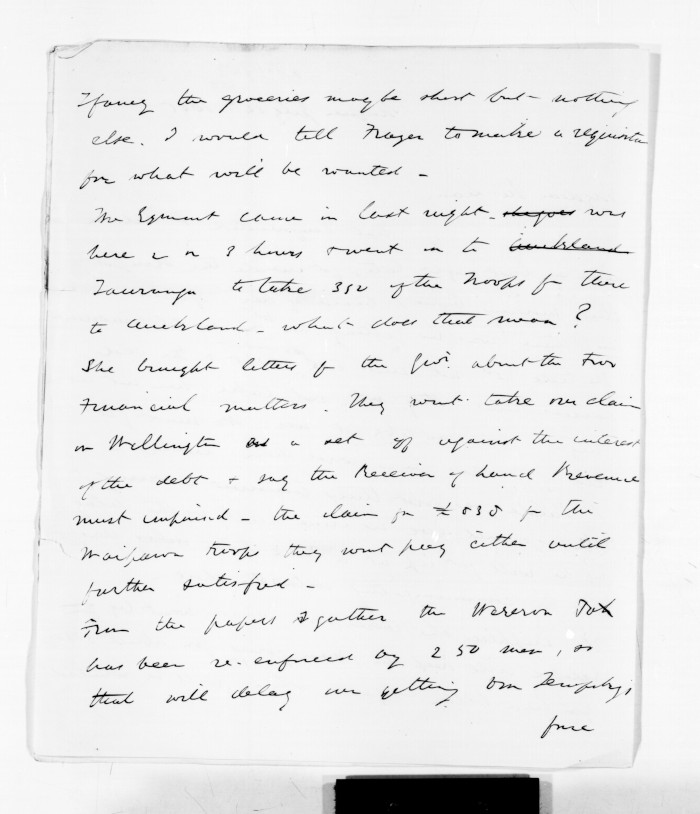 I fancy the groceries maybe short but - nothing
else. I would tell Frazer to make a requisition
for what will be wanted -
The Egmont came in last night - she goes was
here 2 or 3 hours & went on to Auckland
Tauranga to take 350 of the Troops fm there
to Auckland - what does that mean?
She brought letters fm the Govt. about the two
Financial matters. They wont take our claim
on Wellington as a set off against the interest
of the debt & say the Receiver of Land Revenue
must impound - the claim for £ 838 for the
Waipawa troops they wont pay either until
further satisfied -
From the papers I gather the Wereroa Pah
has been re-enforced by 250 men, so
that will delay our getting Von Tempsky's
force